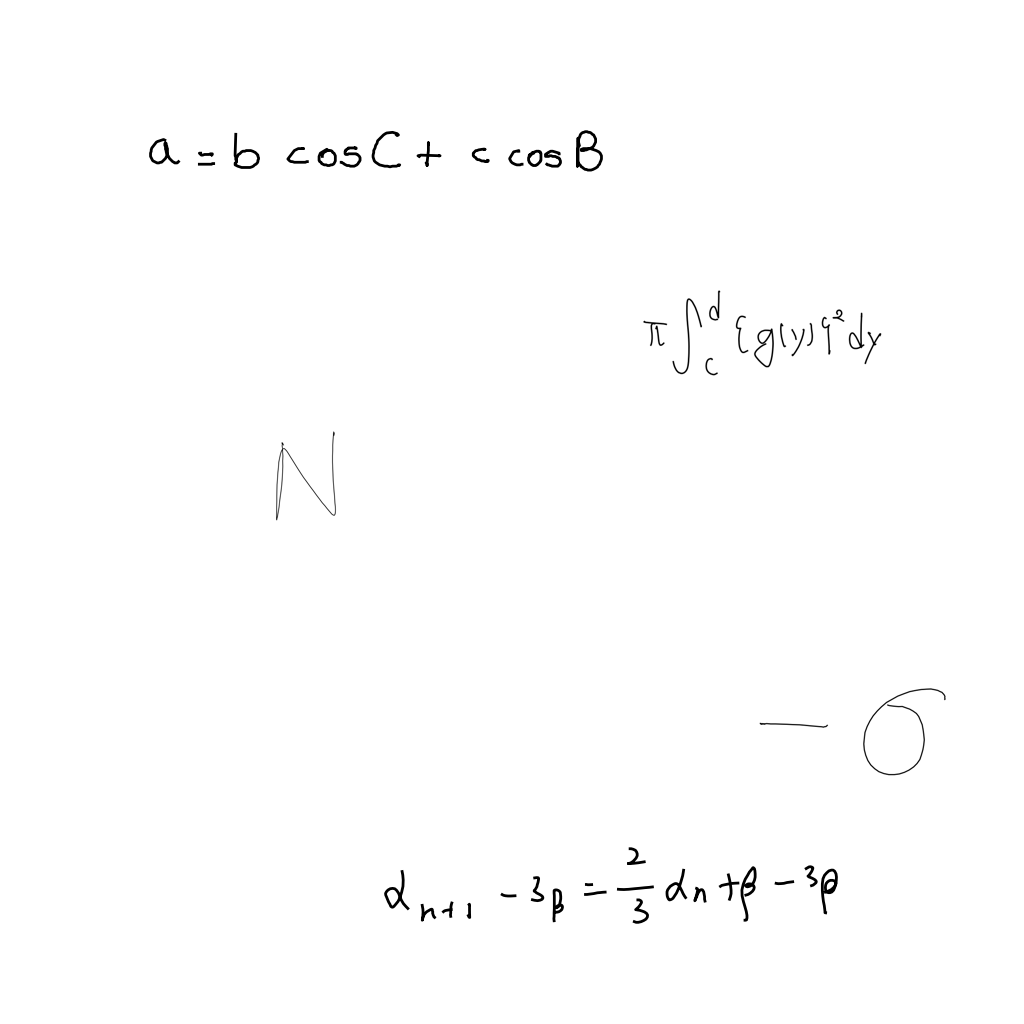 a = b cosC + c cosB
π∫_c^d {g(y)}² dy
N
− σ
α_{n+1} − 3β = \frac{2}{3} α_n + β − 3β